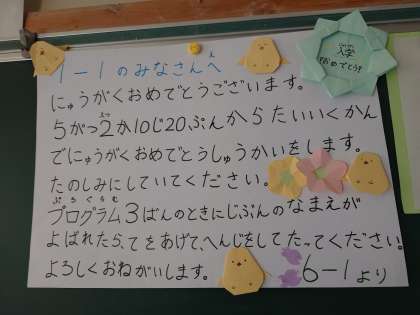 1-1のみなさんへ
にゅうがくおめでとうございます。
5がつ2か10じ20ぷんからたいいくかん
でにゅうがくおめでとうしゅうかいをします。
たのしみにしていてください。
プログラム3ばんのときにじぶんのなまえが
よばれたら、てをあげて、へんじをしてたってください。
よろしくおねがいします。
6-1より
入学
おめでとう